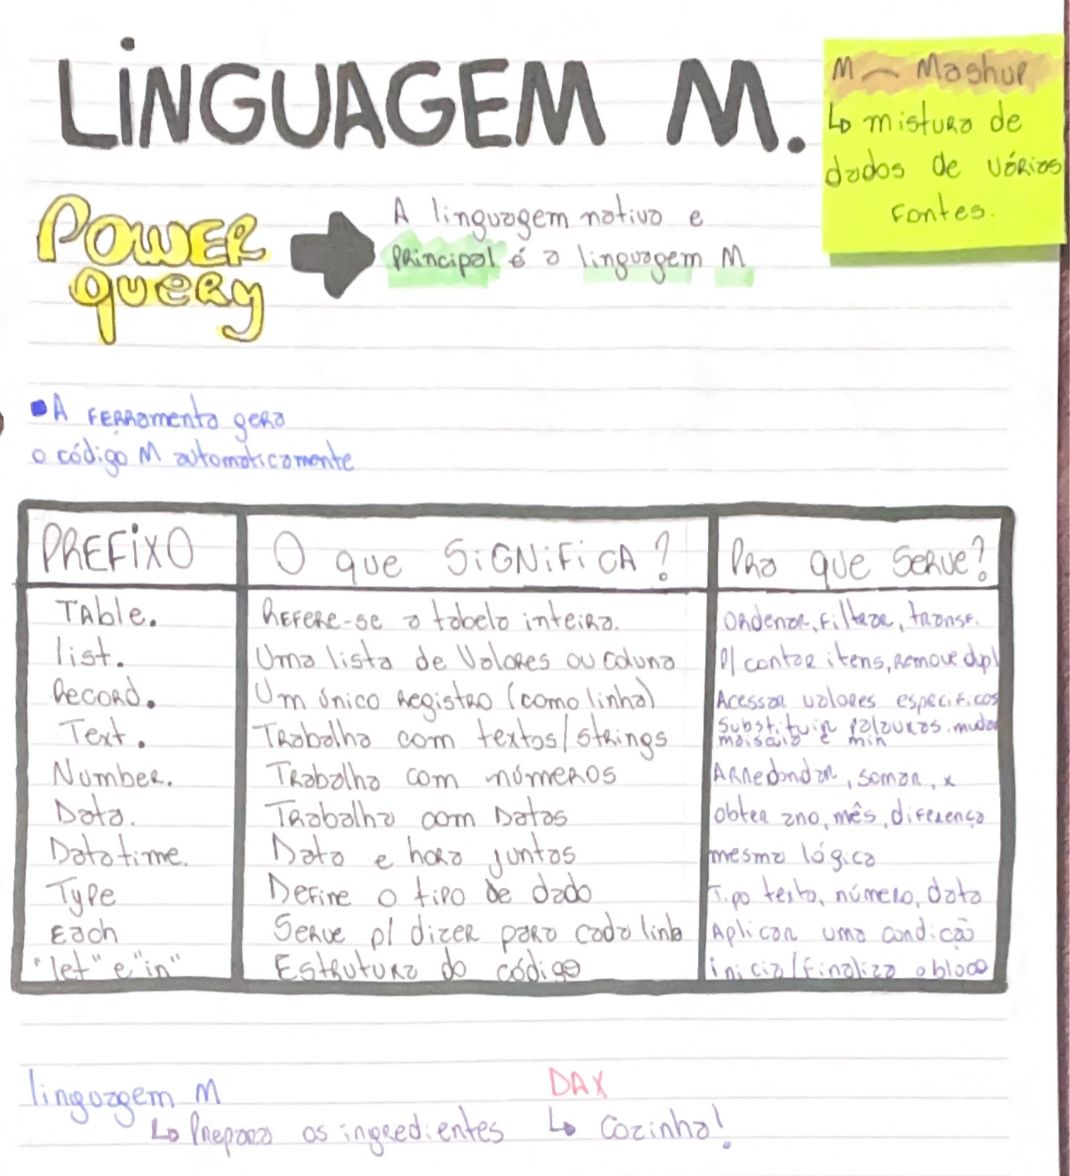 LINGUAGEM M.
M ⁓ Mashup
↳ mistura de
dados de várias
fontes.
POWER
query
A linguagem nativa e
principal é a linguagem M
• A ferramenta gera
o código M automaticamente
PREFIXO O que SiGNiFiCA? Pra que serve?
TAble. Refere-se a tabela inteira. Ordenar, filtrar, transf.
list. Uma lista de Valores ou coluna p/ contar itens, remove dupl
Record. Um único registro (como linha) Acessar valores especificos
Text. Trabalha com textos/strings Substituir palavras. mudar
maiscula e min
Number. Trabalha com números Arredondar, somar, x
Data. Trabalha com Datas obter ano, mês, diferença
Datatime. Data e hora juntas mesma lógica
Type Define o tipo de dado Tipo texto, número, data
Each Serve p/ dizer para cada linha Aplicar uma condição
"let" e "in" Estrutura do código inicia/finaliza o bloco
linguagem M
↳ Prepara os ingredientes
DAX
↳ Cozinha!